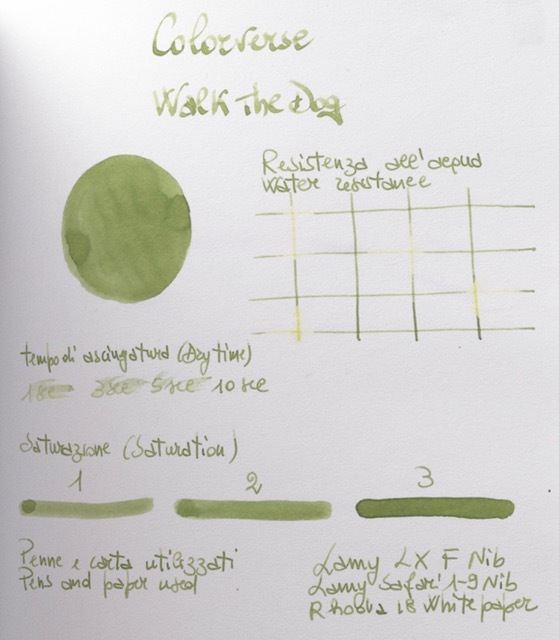 Colorverse
Walk The Dog
Resistenza all'acqua
Water resistance
tempo di asciugatura (Dry time)
1 sec 3 sec 5 sec 10 sec
Saturazione (Saturation)
1 2 3
Penne e carta utilizzati
Pens and paper used
Lamy LX F Nib
Lamy Safari 1-9 Nib
Rhodia 18 White paper